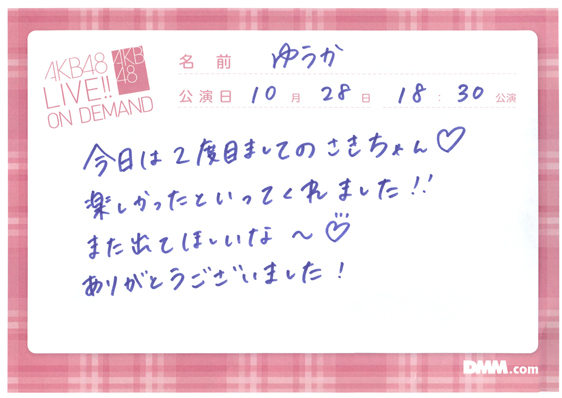 AKB48
LIVE!!
ON DEMAND
AKB
48
名前 ゆうか
公演日 10月 28日 18:30公演
今日は2度目ましてのさきちゃん♡
楽しかったといってくれました!!
また出てほしいな〜♡
ありがとうございました!
DMM.com